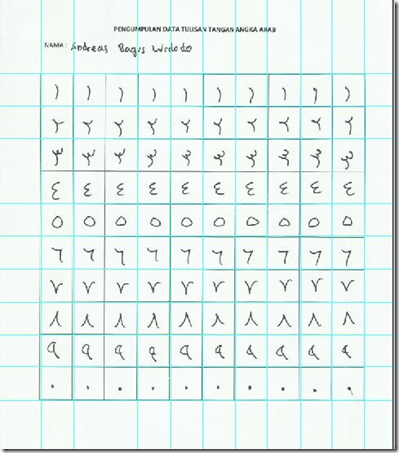 PENGUMPULAN DATA TULISAN TANGAN ANGKA ARAB
NAMA : Andreas Bagus Widodo
١ ١ ١ ١ ١ ١ ١ ١ ١ ١
٢ ٢ ٢ ٢ ٢ ٢ ٢ ٢ ٢ ٢
٣ ٣ ٣ ٣ ٣ ٣ ٣ ٣ ٣ ٣
٤ ٤ ٤ ٤ ٤ ٤ ٤ ٤ ٤ ٤
٥ ٥ ٥ ٥ ٥ ٥ ٥ ٥ ٥ ٥
٦ ٦ ٦ ٦ ٦ ٦ ٦ ٦ ٦ ٦
٧ ٧ ٧ ٧ ٧ ٧ ٧ ٧ ٧ ٧
٨ ٨ ٨ ٨ ٨ ٨ ٨ ٨ ٨ ٨
٩ ٩ ٩ ٩ ٩ ٩ ٩ ٩ ٩ ٩
٠ ٠ ٠ ٠ ٠ ٠ ٠ ٠ ٠ ٠